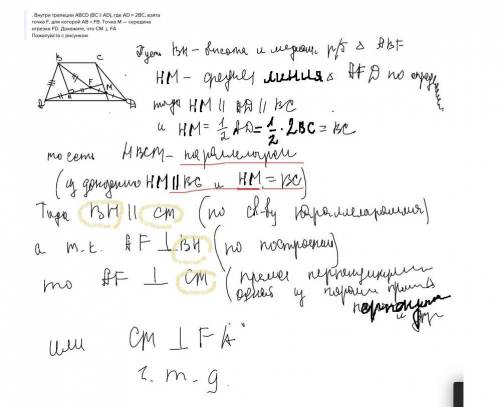 . Внутри трапеции ABCD (BC || AD), где AD = 2BC, взята
точка F, для которой AB = FB. Точка M — середина
отрезка FD. Докажите, что CM ⊥ FA
Пожалуйста с рисунком
B C
F M
H
A D
Пусть BH - высота и медиан. р/б △ ABF
HM - средняя линия △ AFD по опред
тогда HM || AD || BC
и HM = 1/2 AD = 1/2 · 2BC = BC
то есть HBCM - параллелограм
(из доказанно HM || BC и HM = BC)
Тогда BH || CM (по св-ву параллелограмма)
а т.к. AF ⊥ BH (по построению)
то AF ⊥ CM (прямая перпендикуляр
одной из паралл прямых
и
или CM ⊥ FA
ч. т. д.